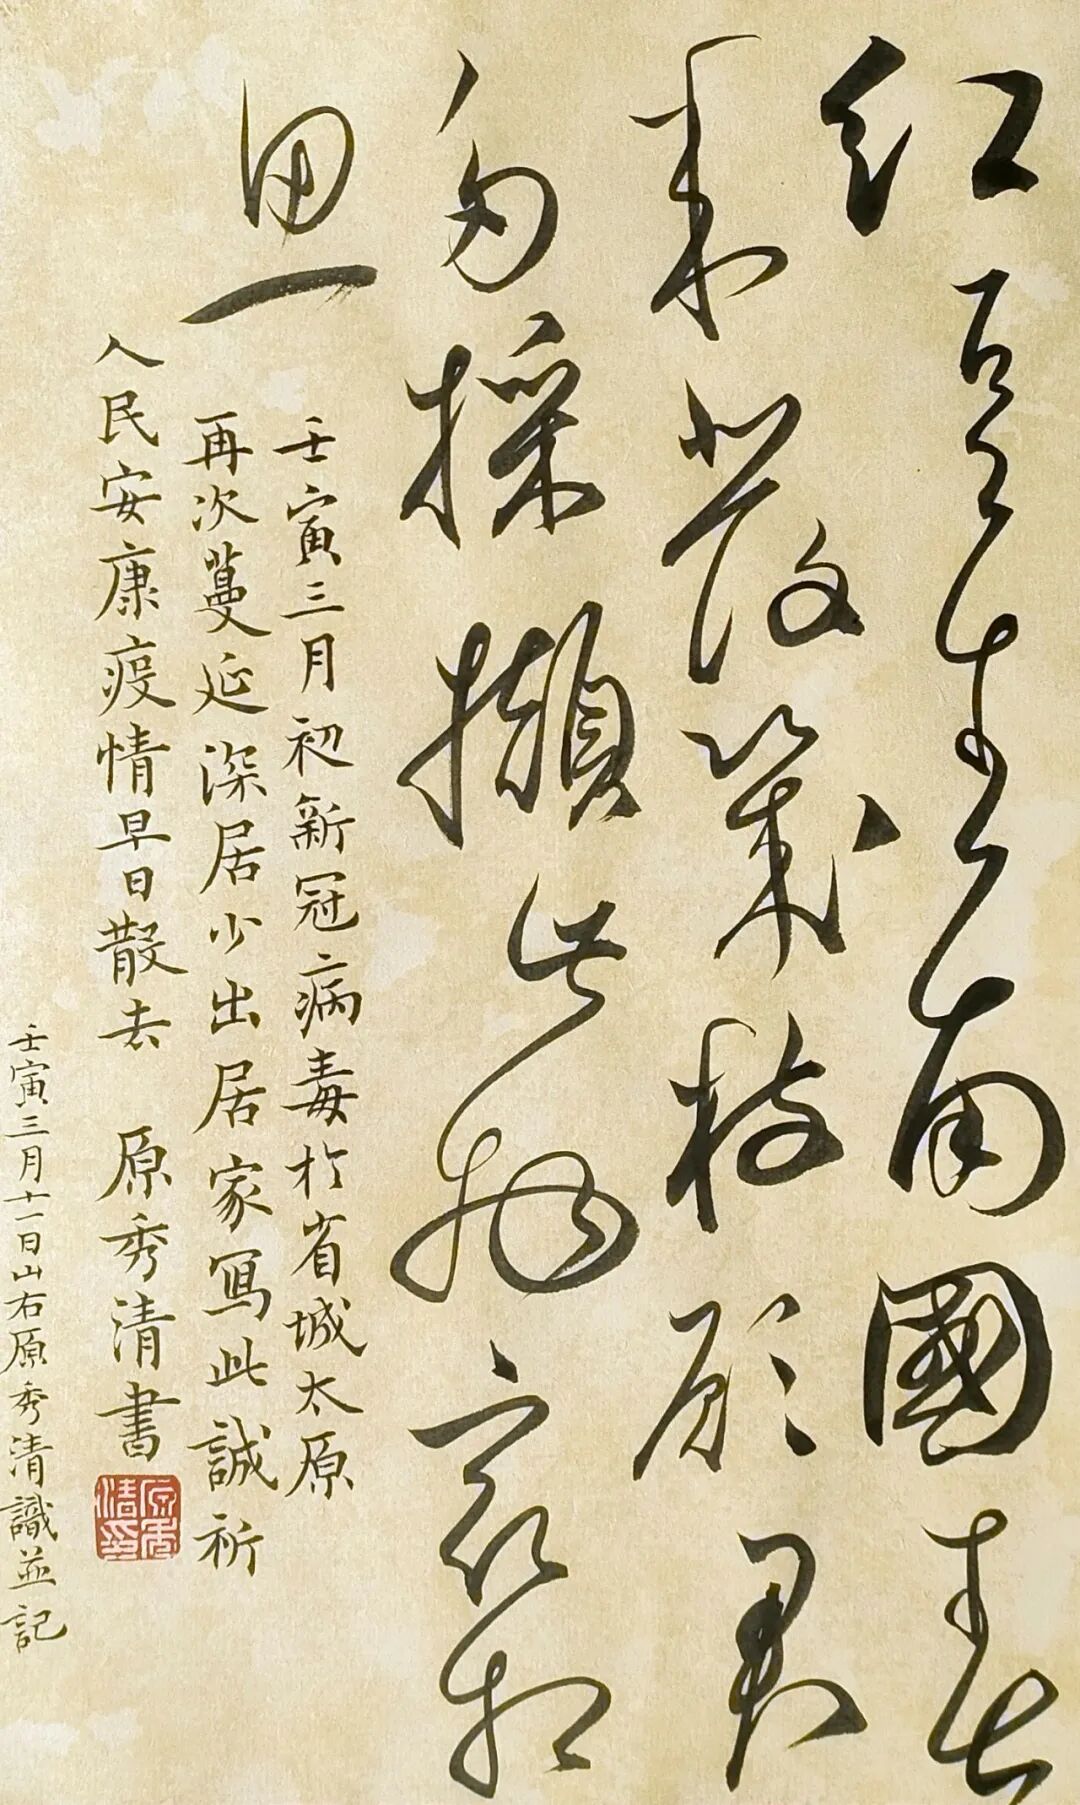 紅豆生南國春
來發幾枝願君
多採擷此物最相
思
壬寅三月初新冠病毒於省城太原
再次蔓延深居少出居家寫此誠祈
人民安康疫情早日散去 原秀清書
原秀清印
壬寅三月十一日山右原秀清識並記